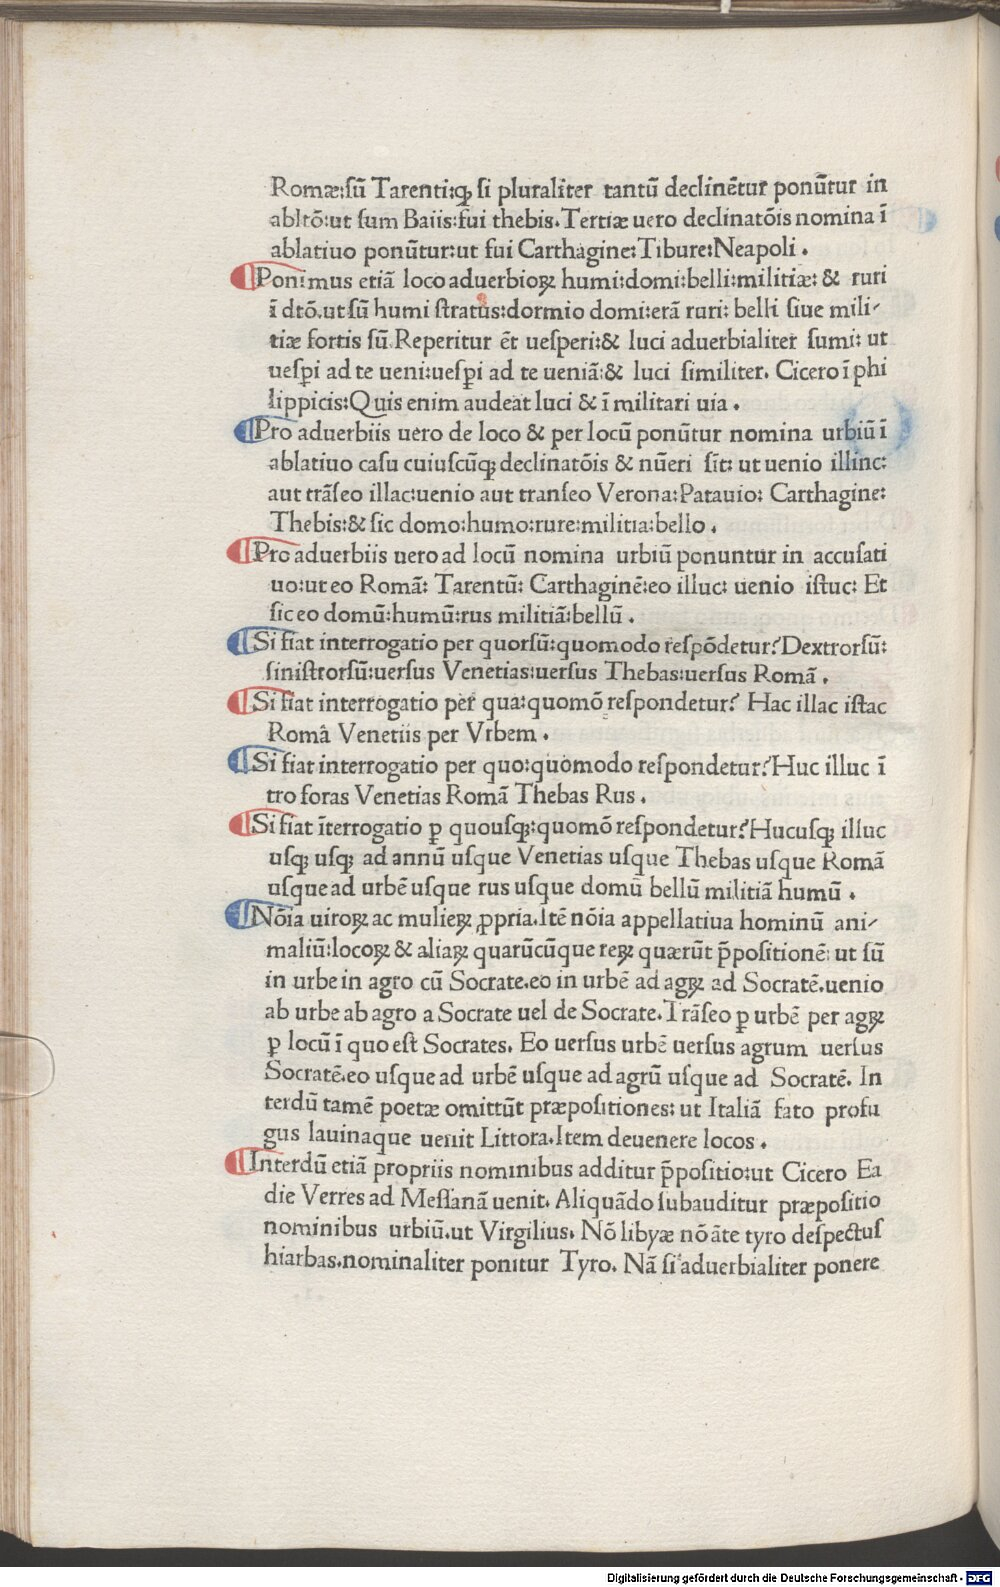 Romæ:ſũ Tarenti:ꝙ ſi pluraliter tantũ declinẽtur ponũtur in
abltõ:ut ſum Baiis:fui thebis. Tertiæ uero declinatõis nomina ĩ
ablatiuo ponũtur:ut fui Carthagine: Tibure:Neapoli .
Ponimus etiã loco aduerbioꝝ humi:domi:belli:militiæ: & ruri
ĩ dtõ.ut ſũ humi ſtratus:dormio domi:erã ruri: belli ſiue mili⸗
tiæ fortis ſũ. Reperitur ẽt ueſperi:& luci aduerbialiter ſumi: ut
ueſꝑi ad te ueni:ueſꝑi ad te ueniã:& luci ſimiliter. Cicero ĩ phi
lippicis:Quis enim audeat luci & ĩ militari uia .
Pro aduerbiis uero de loco & per locũ ponũtur nomina urbiũ ĩ
ablatiuo caſu cuiuſcũqꝫ declinatõis & nũeri ſit: ut uenio illinc:
aut trãſeo illac:uenio aut tranſeo Verona:Patauio: Carthagine:
Thebis:& ſic domo:humo:rure:militia:bello .
Pro aduerbiis uero ad locũ nomina urbiũ ponuntur in accuſati
uo:ut eo Romã: Tarentũ: Carthaginẽ:eo illuc: uenio iſtuc: Et
ſic eo domũ:humũ:rus militiã:bellũ .
Si fiat interrogatio per quorſũ:quomodo reſpõdetur? Dextrorſũ:
ſiniſtrorſũ:uerſus Venetias:uerſus Thebas:uerſus Romã .
Si fiat interrogatio per qua:quomõ reſpondetur? Hac illac iſtac
Romã Venetiis per Vrbem .
Si fiat interrogatio per quo:quomodo reſpondetur? Huc illuc ĩ
tro foras Venetias Romã Thebas Rus .
Si fiat ĩterrogatio ꝑ quouſqꝫ:quomõ reſpondetur? Hucuſqꝫ illuc
uſqꝫ uſqꝫ ad annũ uſque Venetias uſque Thebas uſque Romã
uſque ad urbẽ uſque rus uſque domũ bellũ militiã humũ .
Nõia uiroꝝ ac mulieꝝ ꝓpria. Itẽ nõia appellatiua hominũ ani⸗
maliũ:locoꝝ & aliaꝝ quarũcũque reꝝ quærũt p̃poſitionẽ: ut ſũ
in urbe in agro cũ Socrate.eo in urbẽ ad agꝝ ad Socratẽ.uenio
ab urbe ab agro a Socrate uel de Socrate. Trãſeo ꝑ urbẽ per agꝝ
ꝑ locũ ĩ quo eſt Socrates. Eo uerſus urbẽ uerſus agrum uerſus
Socratẽ.eo uſque ad urbẽ uſque ad agrũ uſque ad Socratẽ. In
terdũ tamẽ poetæ omittũt præpoſitiones: ut Italiã fato profu
gus lauinaque uenit Littora. Item deuenere locos .
Interdũ etiã propriis nominibus additur p̃poſitio:ut Cicero Ea
die Verres ad Meſſanã uenit. Aliquãdo ſubauditur præpoſitio
nominibus urbiũ.ut Virgilius. Nõ libyæ nõ ãte tyro deſpectuſ
hiarbas.nominaliter ponitur Tyro. Nã ſi aduerbialiter ponere
Digitalisierung gefördert durch die Deutsche Forschungsgemeinschaft - DFG